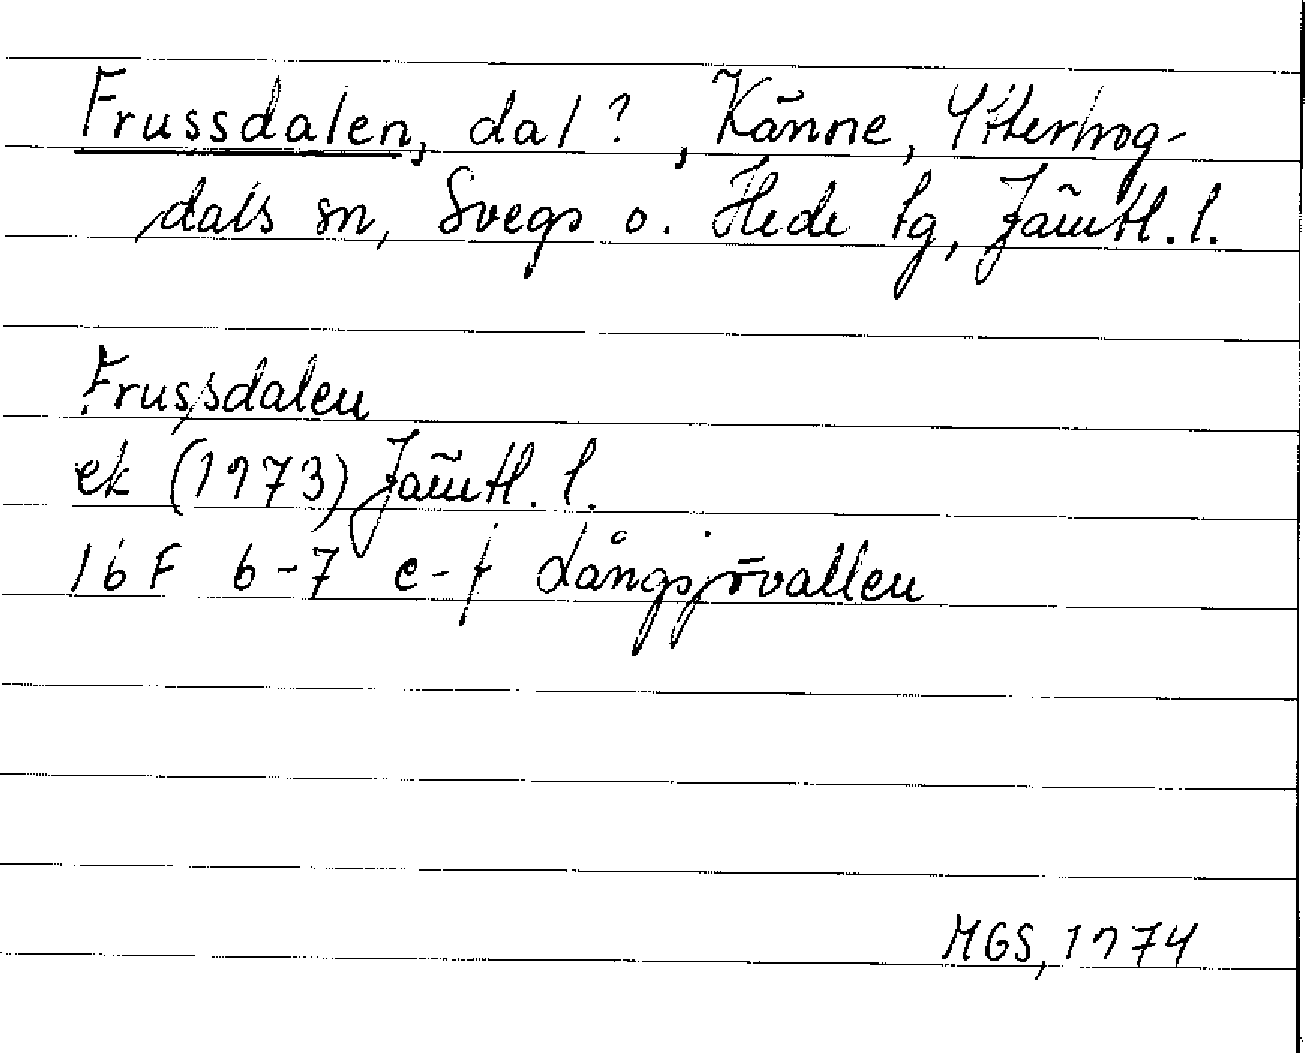 Frussdalen, dal?, Känne, Ytterhog-
dals sn, Svegs o. Hede tg, Jämtl. l.
Frussdalen
ek (1973) Jämtl. l.
16F 6-7 e-f Långsjövallen
MGS, 1974